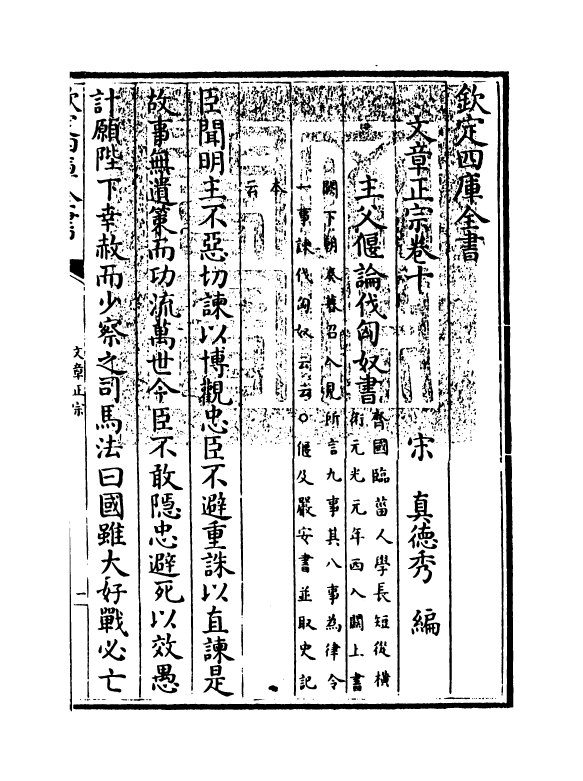 欽定四庫全書
文章正宗卷十 宋 真德秀 編
主父偃論伐匈奴書
齊國臨菑人學長短從橫
術元光元年西入關上書
闕下朝奏暮召入見所言九事其八事為律令
一事諫伐匈奴云云○偃及嚴安書並取史記
本
云
臣聞明主不惡切諫以博觀忠臣不避重誅以直諫是
故事無遺策而功流萬世今臣不敢隱忠避死以效愚
計願陛下幸赦而少察之司馬法曰國雖大好戰必亡
文章正宗
一